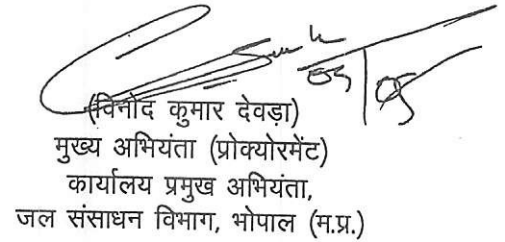 05/05
(विनोद कुमार देवड़ा)
मुख्य अभियंता (प्रोक्योरमेंट)
कार्यालय प्रमुख अभियंता,
जल संसाधन विभाग, भोपाल (म.प्र.)